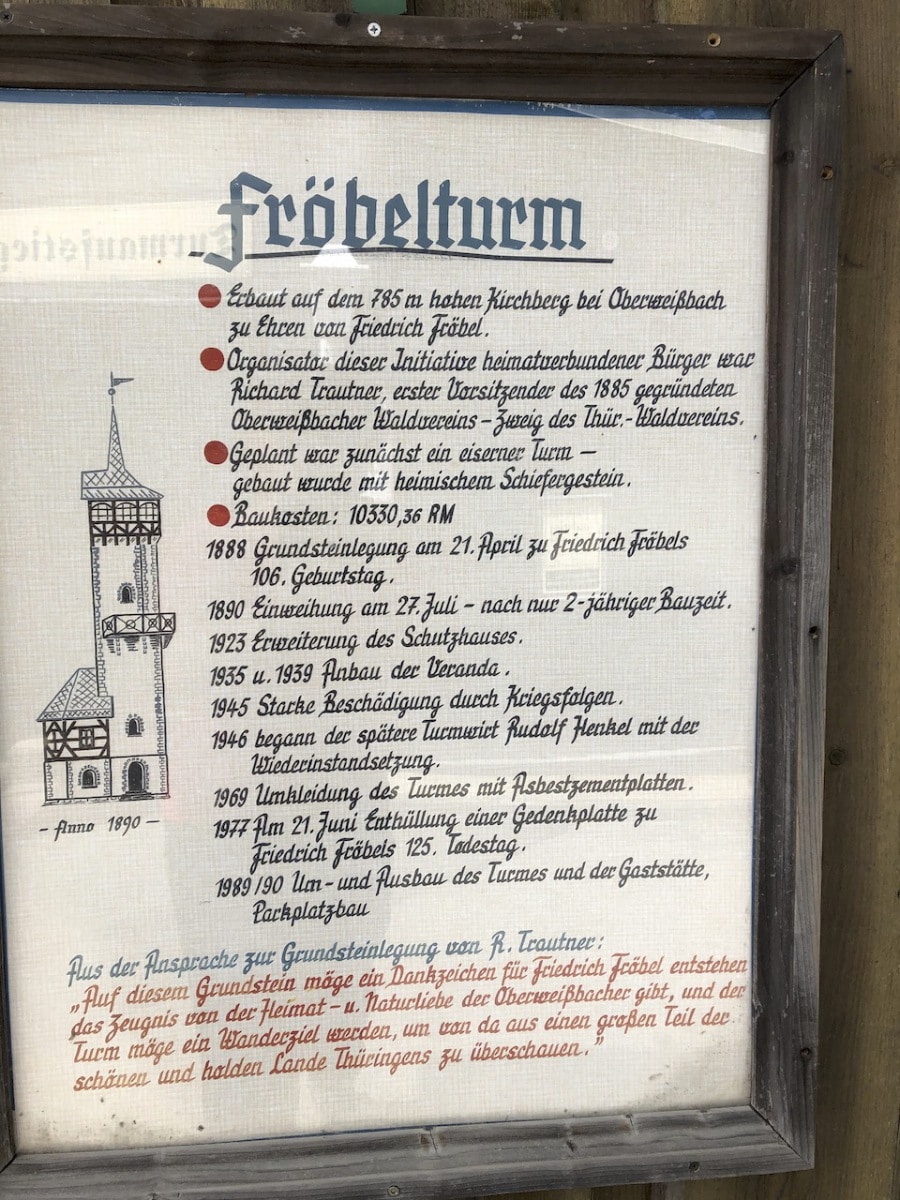 Fröbelturm
Turmaufstieg
Erbaut auf dem 785 m hohen Kirchberg bei Oberweißbach
zu Ehren von Friedrich Fröbel.
Organisator dieser Initiative heimatverbundener Bürger war
Richard Trautner, erster Vorsitzender des 1885 gegründeten
Oberweißbacher Waldvereins – Zweig des Thür.-Waldvereins.
Geplant war zunächst ein eiserner Turm –
gebaut wurde mit heimischem Schiefergestein.
Baukosten: 10330,36 RM
1888 Grundsteinlegung am 21. April zu Friedrich Fröbels
106. Geburtstag.
1890 Einweihung am 27. Juli – nach nur 2-jähriger Bauzeit.
1923 Erweiterung des Schutzhauses.
1935 u. 1939 Anbau der Veranda.
1945 Starke Beschädigung durch Kriegsfolgen.
1946 begann der spätere Turmwirt Rudolf Henkel mit der
Wiederinstandsetzung.
1969 Umkleidung des Turmes mit Asbestzementplatten.
1977 Am 21. Juni Enthüllung einer Gedenkplatte zu
Friedrich Fröbels 125. Todestag.
1989/90 Um- und Ausbau des Turmes und der Gaststätte,
Parkplatzbau
– Anno 1890 –
Aus der Ansprache zur Grundsteinlegung von R. Trautner:
„Auf diesem Grundstein möge ein Dankzeichen für Friedrich Fröbel entstehen
das Zeugnis von der Heimat- u. Naturliebe der Oberweißbacher gibt, und der
Turm möge ein Wanderziel werden, um von da aus einen großen Teil der
schönen und holden Lande Thüringens zu überschauen."